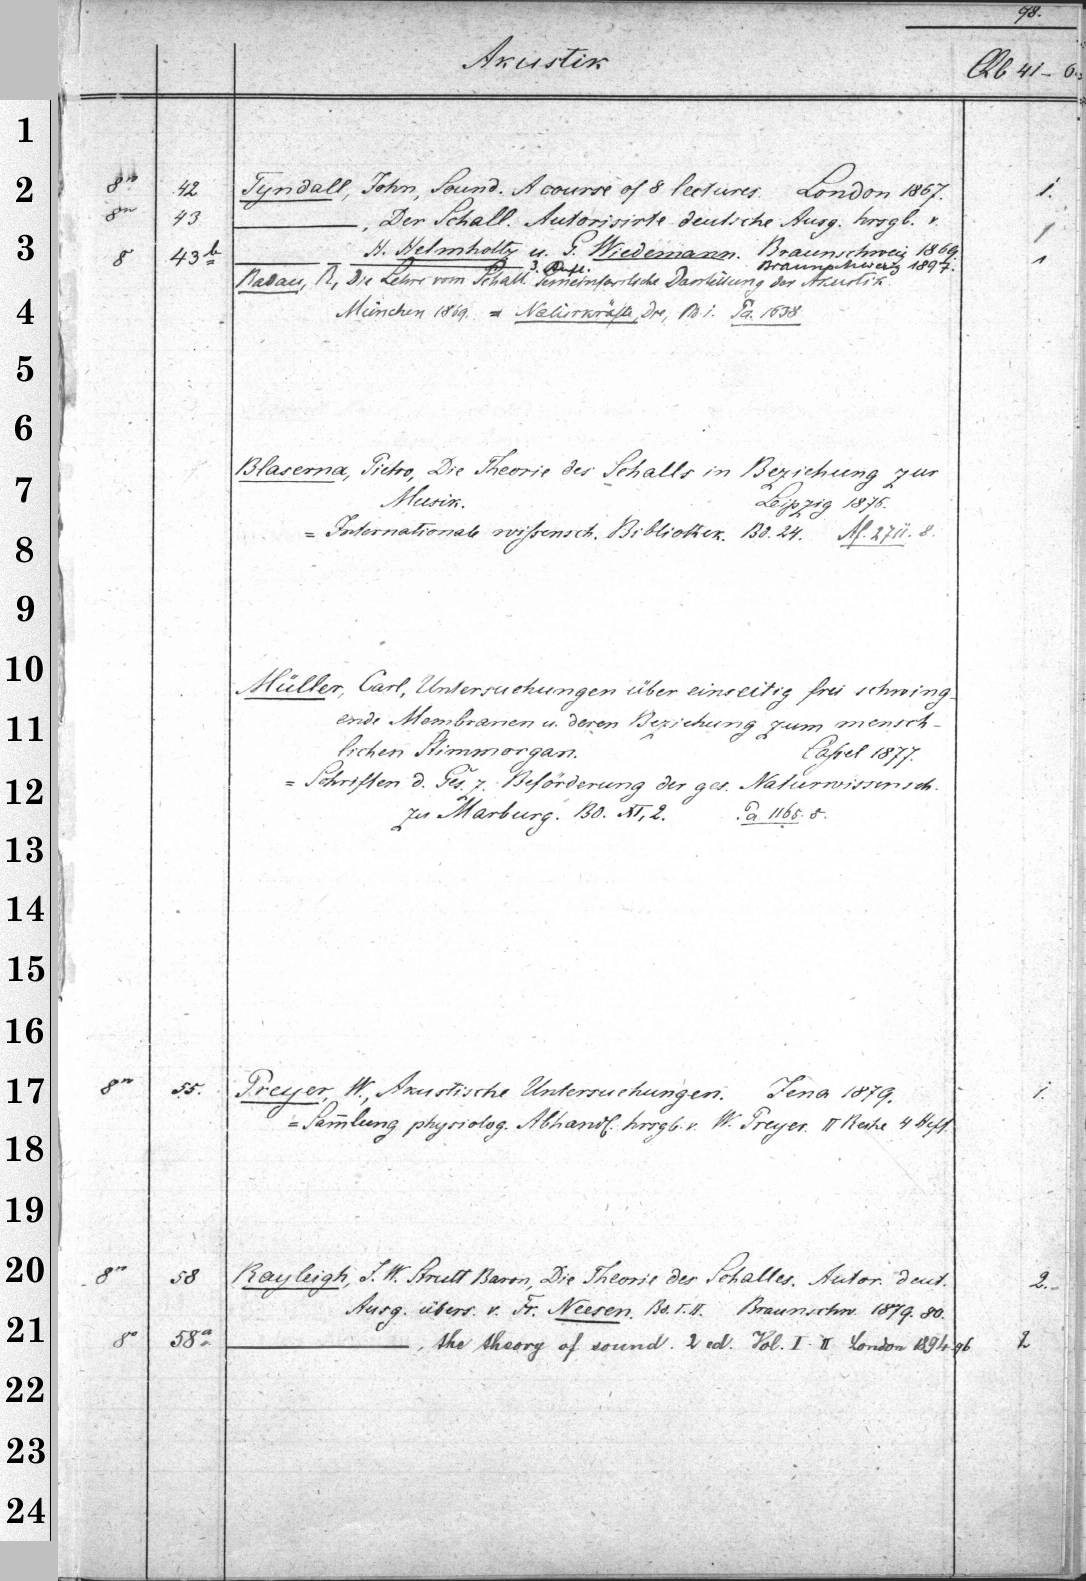 98.
Akustik
Qb 41-6
1
2
3
4
5
6
7
8
9
10
11
12
13
14
15
16
17
18
19
20
21
22
23
24
8vo 42 Tyndall, John, Sound. A course of 8 lectures. London 1867. 1.
8vo 43 ———, Der Schall. Autorisirte deutsche Ausg. hrsgb. v. 1
H. Helmholtz u. G. Wiedemann. Braunschweig 1869.
8 43b ——— — ——— 3. Aufl. Braunschweig 1897. 1
Radau, R, Die Lehre vom Schall. Gemeinfassliche Darstellung der Akustik
München 1869. = Naturkräfte, Die, Bd i. Pa. 1638
Blaserna, Pietro, Die Theorie des Schalls in Beziehung zur
Musik. Leipzig 1876.
= Internationale wissensch. Bibliothek. Bd. 24. Af. 27II. 8.
Müller, Carl, Untersuchungen über einseitig frei schwing-
ende Membranen u. deren Beziehung zum mensch-
lichen Stimmorgan. Cassel 1877.
= Schriften d. Ges. z. Beförderung der ges. Naturwissensch.
zu Marburg. Bd. XI, 2. Pa 1165. 8.
8vo 55. Preyer, W., Akustische Untersuchungen. Jena 1879. 1.
= Sam̅lung physiolog. Abhandl. hrsgb. v. W. Preyer. II Reihe 4 Heft.
8vo 58 Rayleigh, J. W. Strutt Baron, Die Theorie des Schalles. Autor. deut. 2.
Ausg. übers. v. Fr. Neesen. Bd. I. II. Braunschw. 1879. 80.
8o 58a ———, the theory of sound. 2 ed. Vol. I - II London 1894-96 2